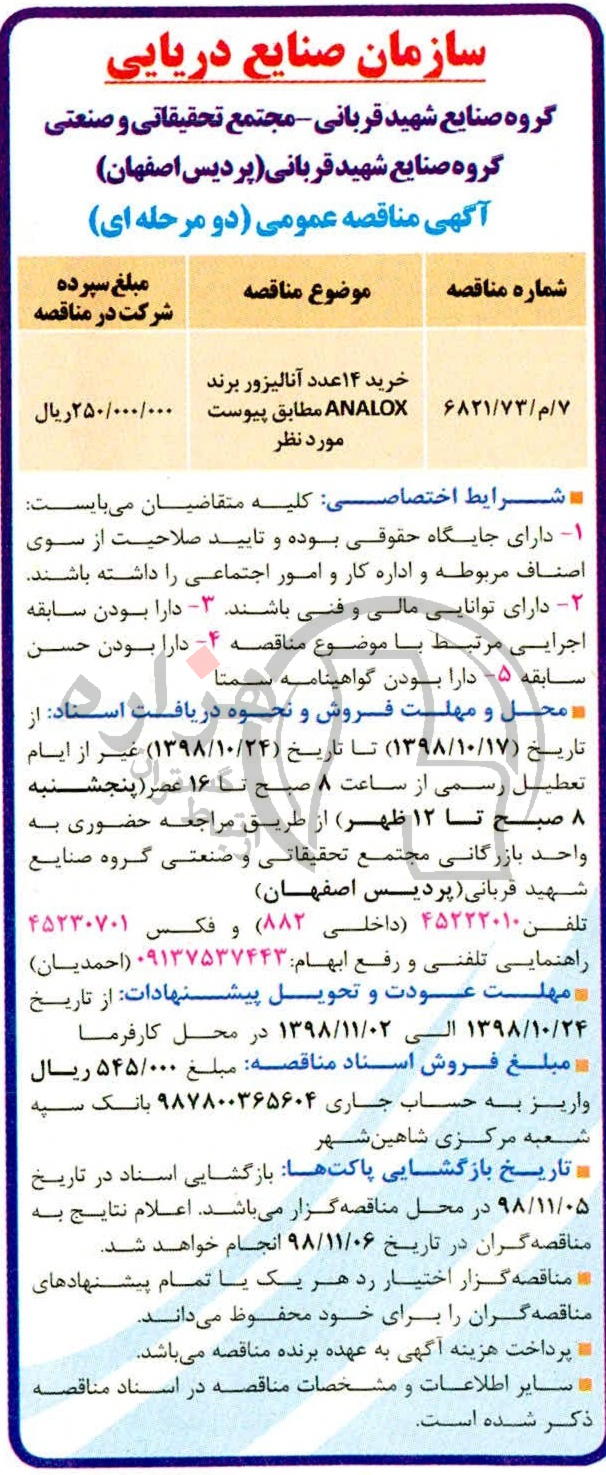 سازمان صنایع دریایی
گروه صنایع شهید قربانی-مجتمع تحقیقاتی و صنعتی
گروه صنایع شهید قربانی(پردیس اصفهان)
آگهی مناقصه عمومی (دو مرحله ای)
شماره مناقصه
موضوع مناقصه
مبلغ سپرده
شرکت در مناقصه
۷/م/۶۸۲۱/۷۳
خرید ۱۴عدد آنالیزور برند
ANALOX مطابق پیوست
مورد نظر
۲۵۰/۰۰۰/۰۰۰ریال
شـــرایط اختصاصــــی: کلیـــه متقاضیــان می‌بایســت:
۱- دارای جایگاه حقوقی بــوده و تاییـد صلاحیت از سوی
اصنـاف مربوطـه و اداره کار و امـور اجتماعـی را داشـته باشـند.
۲- دارای توانایی مالـی و فنـی باشـند. ۳- دارا بـودن سـابقه
اجرایـی مرتبـط بـا موضـوع مناقصـه ۴- دارا بـودن حسـن
سـابقه ۵- دارا بـودن گواهینامـه سـمتا
محــل و مهلـت فــروش و نحــوه دریافـت اسـناد: از
تاریخ (۱۳۹۸/۱۰/۱۷) تـا تاریخ (۱۳۹۸/۱۰/۲۴) غیـر از ایـام
تعطیـل رسـمی از سـاعت ۸ صبـح تـا ۱۶ عصر(پنجشـنبه
۸ صبــح تــا ۱۲ ظهـر) از طریـق مراجعـه حضـوری بـه
واحـد بازرگانـی مجتمـع تحقیقاتـی و صنعتـی گـروه صنایـع
شــهید قربانی(پردیــس اصفهــان)
تلفــن۴۵۲۲۲۰۱۰ (داخلــی ۸۸۲) و فکــس ۴۵۲۳۰۷۰۱
راهنمایـی تلفنـی و رفـع ابهـام:۰۹۱۳۷۵۳۷۴۴۳(احمدیـان)
مهلــت عــودت و تحویــل پیشــنهادات: از تاریـخ
۱۳۹۸/۱۰/۲۴ الــی ۱۳۹۸/۱۱/۰۲ در محــل کارفرمــا
مبلــغ فــروش اسـناد مناقصــه: مبلـغ ۵۴۵/۰۰۰ ریـال
واریـز بـه حسـاب جـاری ۹۸۷۸۰۰۳۶۵۶۰۴ بانـک سـپه
شـعبه مرکـزی شاهین‌شـهر
تاریـخ بازگشـایی پاکت‌هـا: بازگشـایی اسـناد در تاریـخ
۹۸/۱۱/۰۵ در محـل مناقصه‌گـزار می‌باشـد. اعـلام نتایـج بـه
مناقصه‌گـران در تاریـخ ۹۸/۱۱/۰۶ انجـام خواهـد شـد.
مناقصه‌گـزار اختیـار رد هـر یـک یـا تمـام پیشـنهادهای
مناقصه‌گــران را بــرای خــود محفــوظ می‌دانــد.
پرداخت هزینه آگهی به عهده برنده مناقصه می‌باشد.
سـایر اطلاعـات و مشـخصات مناقصـه در اسـناد مناقصـه
ذکـر شـده اسـت.
هزاره